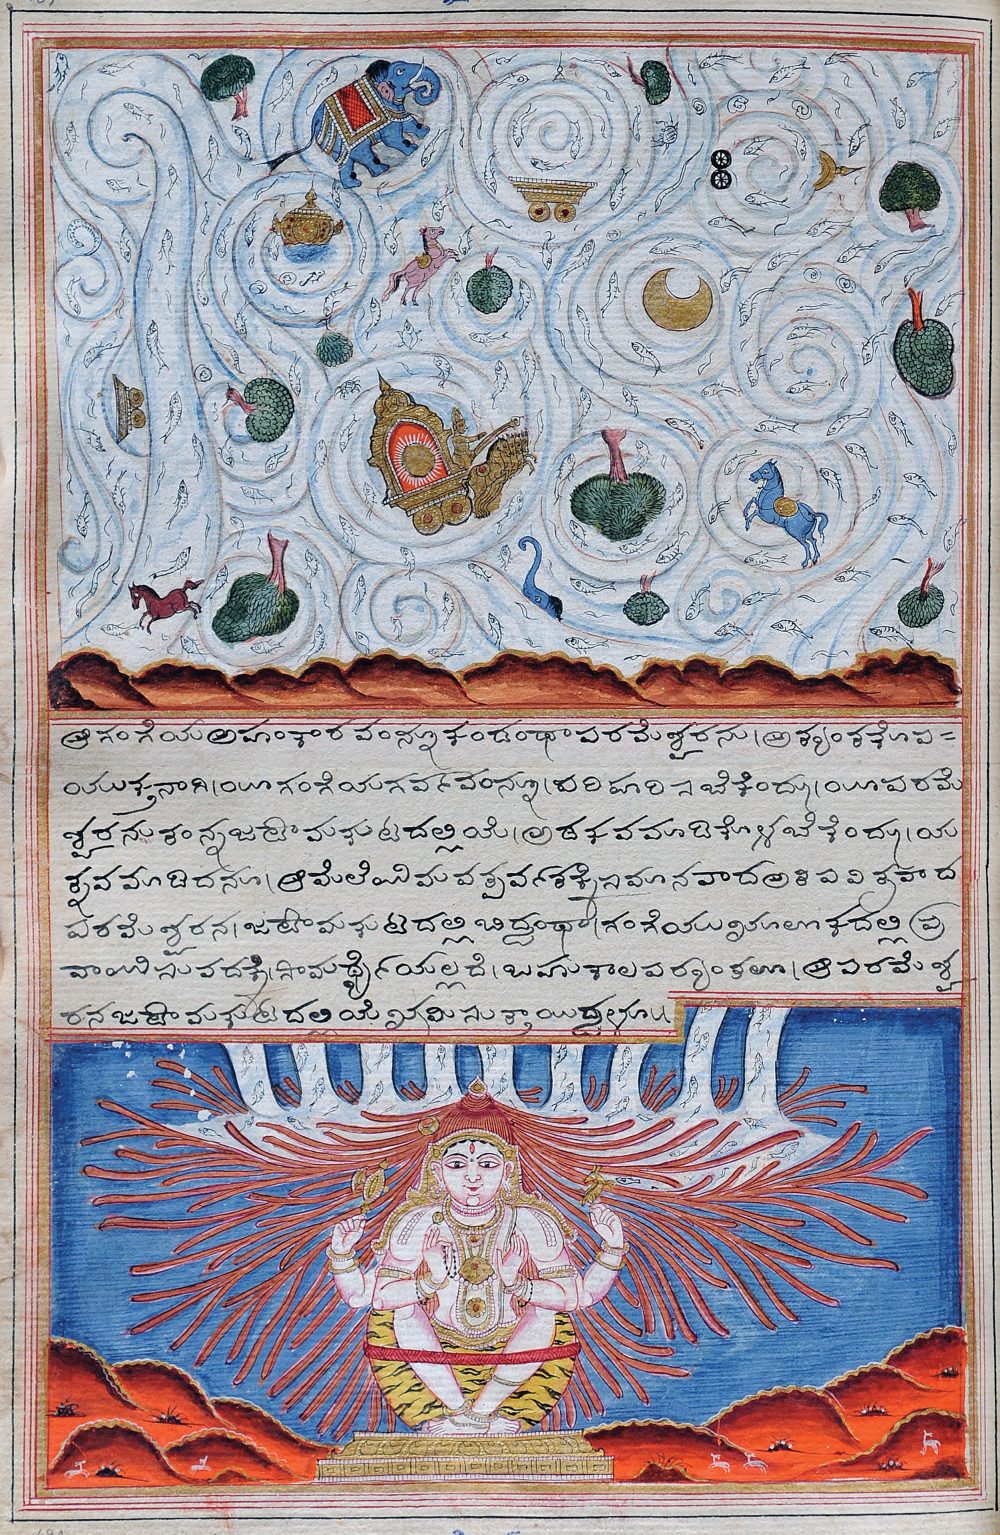 ಆ ಗಂಗೆಯ ಅಹಂಕಾರವಂನ್ನೂ ಕಂಡಂಥಾ ಪರಮೆಶ್ವರನು। ಅತ್ಯಂತ ಕೊಪ=
ಯುಕ್ತನಾಗಿ। ಯೀ ಗಂಗೆಯ ಗರ್ವವಂನ್ನೂ। ಪರಿಹರಿಸಬೆಕೆಂದ್ದು। ಯೀ ಪರಮೆ
ಶ್ವರನು ತಂನ್ನ ಜಟಾಮಕುಟದಲ್ಲಿಯೆ। ಅಡಕವ ಮಾಡಿಕೊಳಬೆಕೆಂದ್ದು। ಯ
ತ್ನವ ಮಾಡಿದನೂ। ಆ ಮೆಲೆ ಯಿಮವತ್ಪರ್ವತಕ್ಕೆ ಸಮಾನವಾದ ಅತಿ ಪವಿತ್ರವಾದ
ಪರಮೆಶ್ವರನ। ಜಟಾಮಕುಟದಲ್ಲಿ ಬಿದ್ದಂಥಾ। ಗಂಗೆಯು ಭೂಲೊಕದಲ್ಲಿ ಪ್ರ
ವಾಯಿಸುವದಕ್ಕೆ। ಸಾಮರ್ಥ್ಯೆಯಲ್ಲದೆ। ಬಹುಕಾಲ ಪರ್ಯಂತರಾ। ಆ ಪರಮೆಶ್ವ
ರನ ಜಟಾಮಕುಟದಲ್ಲಿಯೆ ಭ್ರಮಿಸುತ್ತಾಯಿದ್ದಳೂ॥